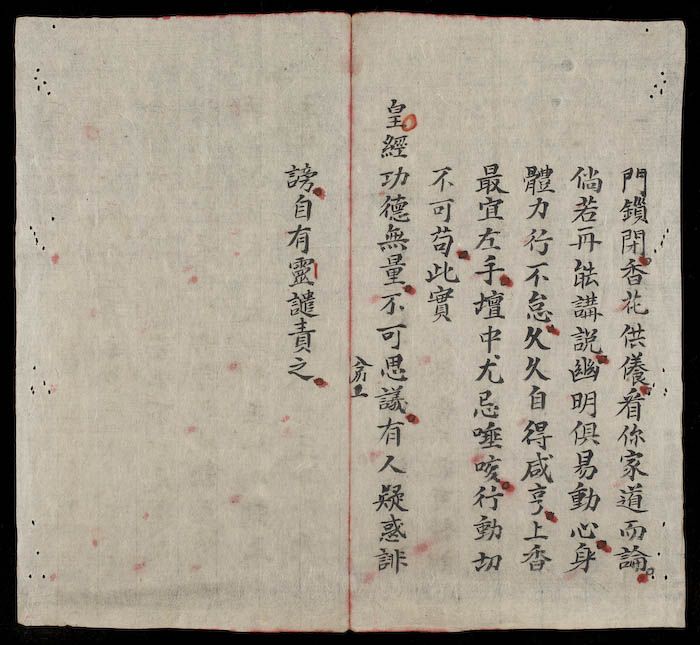 門鎖閉香花供儀看你家道而論
倘若再能講説幽明俱易動心身
體力行不怠久久自得咸亨上香
最宜左手壇中尤忌唾咳行動切
不可苟此實
皇經功德無量不可思議有人疑惑誹
謗自有靈譴責之